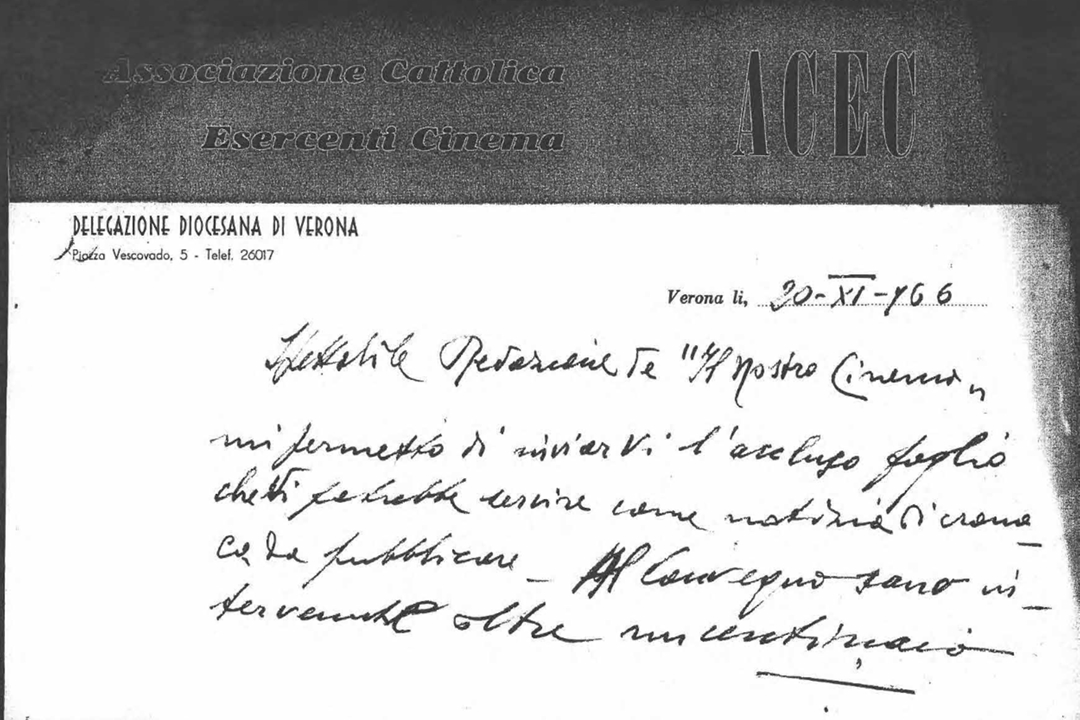 Associazione Cattolica
Esercenti Cinema
ACEC
DELEGAZIONE DIOCESANA DI VERONA
Piazza Vescovado, 5 - Telef. 26017
Verona li, 20-XI-966
Spettabile Redazione de "Il Nostro Cinema"
mi permetto di inviarVi l'accluso foglio
che Vi potrebbe servire come notizia di crona-
ca da pubblicare - Al Convegno sono in-
tervenute oltre un centinaio